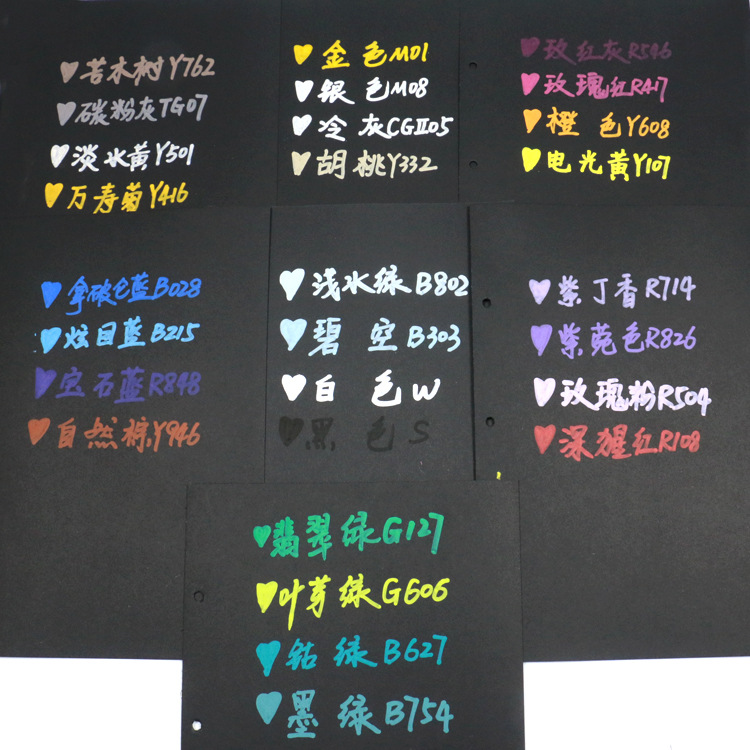 苦木树Y762
碳粉灰TG07
淡水黄Y501
万寿菊Y416
金色M01
银色M08
冷灰CGⅡ05
胡桃Y332
玫红灰R546
玫瑰红R417
橙色Y608
电光黄Y107
拿破仑蓝B028
炫目蓝B215
宝石蓝R848
自然棕Y946
浅水绿B802
碧空B303
白色W
黑色S
紫丁香R714
紫菀色R826
玫瑰粉R504
深猩红R108
翡翠绿G127
叶芽绿G606
钴绿B627
墨绿B754